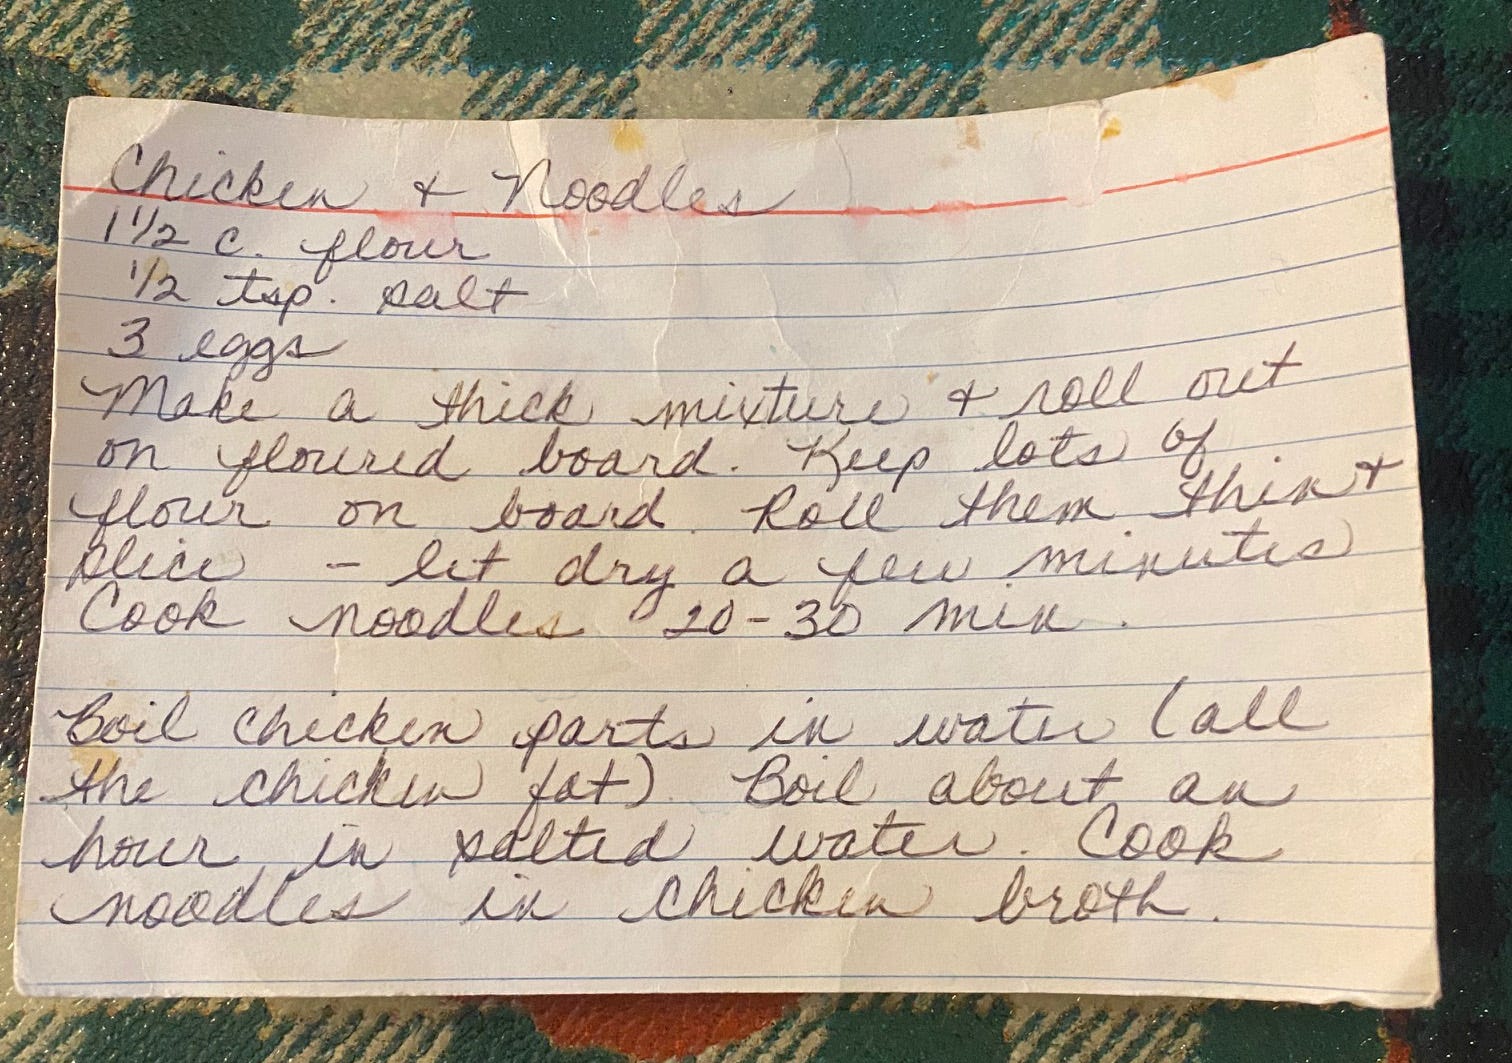 Chicken & Noodles
1 1/2 c. flour
1/2 tsp. salt
3 eggs
Make a thick mixture & roll out
on floured board. Keep lots of
flour on board. Roll them thin &
slice - let dry a few minutes
Cook noodles 20-30 min.
Boil chicken parts in water (all
the chicken fat) Boil about an
hour in salted water. Cook
noodles in chicken broth.